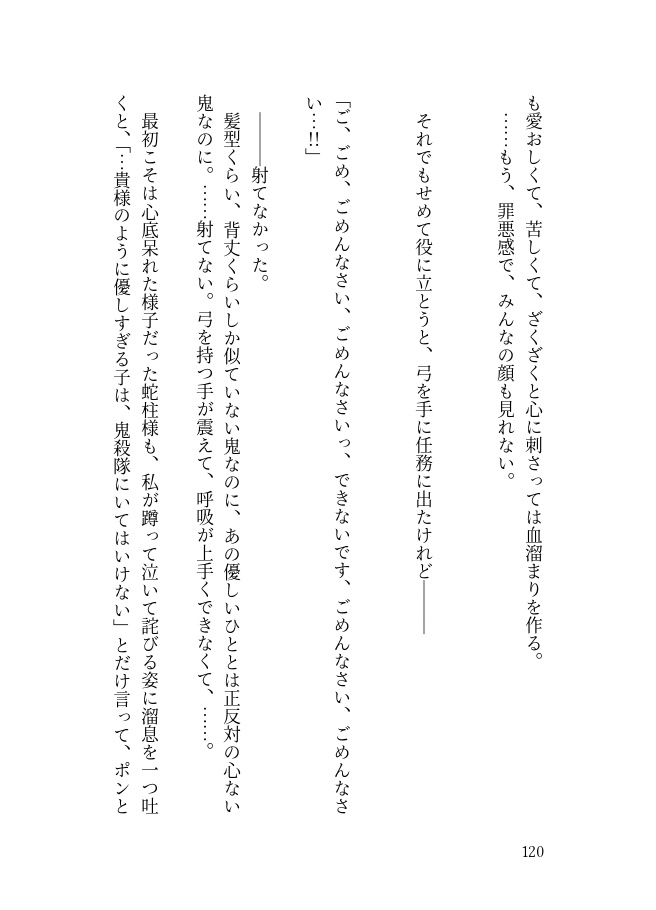 も愛おしくて、苦しくて、ざくざくと心に刺さっては血溜まりを作る。
……もう、罪悪感で、みんなの顔も見れない。
それでもせめて役に立とうと、弓を手に任務に出たけれど―――
「ご、ごめ、ごめんなさい、ごめんなさいっ、できないです、ごめんなさい、ごめんなさ
い…!!」
―――射てなかった。
髪型くらい、背丈くらいしか似ていない鬼なのに、あの優しいひととは正反対の心ない
鬼なのに。……射てない。弓を持つ手が震えて、呼吸が上手くできなくて、……。
最初こそは心底呆れた様子だった蛇柱様も、私が蹲って泣いて詫びる姿に溜息を一つ吐
くと、「…貴様のように優しすぎる子は、鬼殺隊にいてはいけない」とだけ言って、ポンと
120